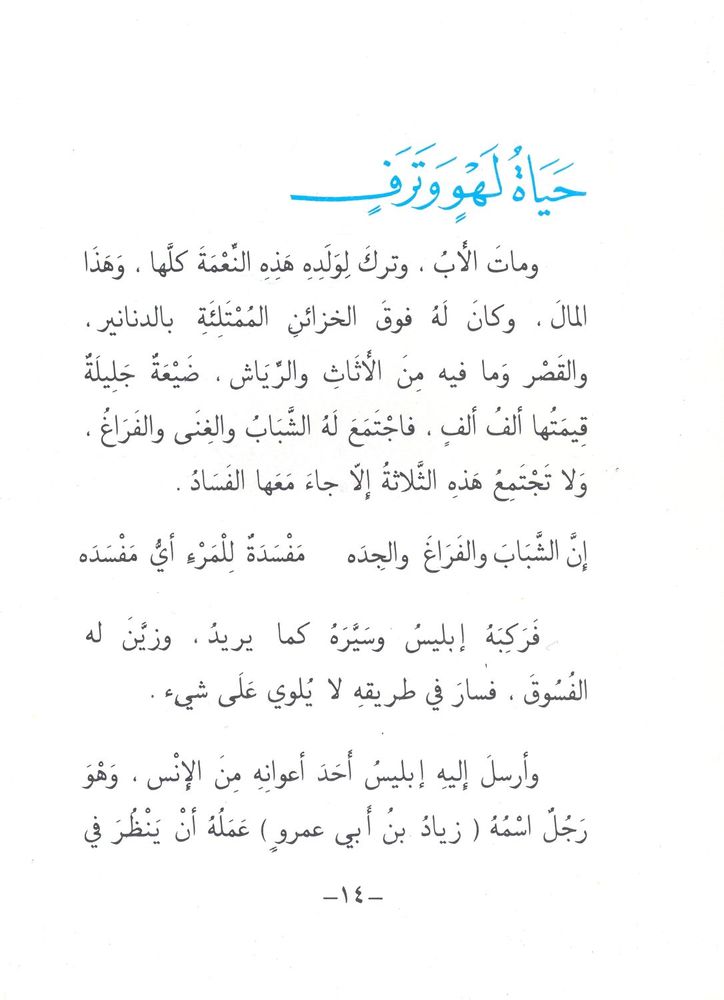 حَيَاةُ لَهْوٍ وَتَرَفٍ
وماتَ الأبُ ، وتركَ لِوَلَدِهِ هَذِهِ النِّعْمَةَ كلَّها ، وَهَذَا
المالَ ، وكانَ لَهُ فوقَ الخزائنِ المُمْتَلِئَةِ بالدنانير ،
والقَصْر وَما فيه مِنَ الأَثَاثِ والرِّيَاش ، ضَيْعَةٌ جَلِيلَةٌ
قِيمَتُها ألفُ ألفٍ ، فاجْتَمَعَ لَهُ الشَّبَابُ والغِنَى والفَرَاغُ ،
وَلا تَجْتَمِعُ هَذهِ الثَّلاثةُ إلّا جاءَ مَعَها الفَسَادُ .
إنَّ الشَّبَابَ والفَرَاغَ والجِدَه مَفْسَدَةٌ لِلْمَرْءِ أيُّ مَفْسَدَه
فَرَكِبَهُ إبليسُ وسَيَّرَهُ كما يريدُ ، وزيَّنَ له
الفُسُوقَ ، فسارَ في طريقهِ لا يُلوي عَلَى شيء .
وأرسلَ إليهِ إبليسُ أَحَدَ أعوانِهِ مِنَ الإنْس ، وَهْوَ
رَجُلٌ اسْمُهُ ( زيادُ بنُ أَبي عمروٍ ) عَمَلُهُ أنْ يَنْظُرَ في
–١٤–